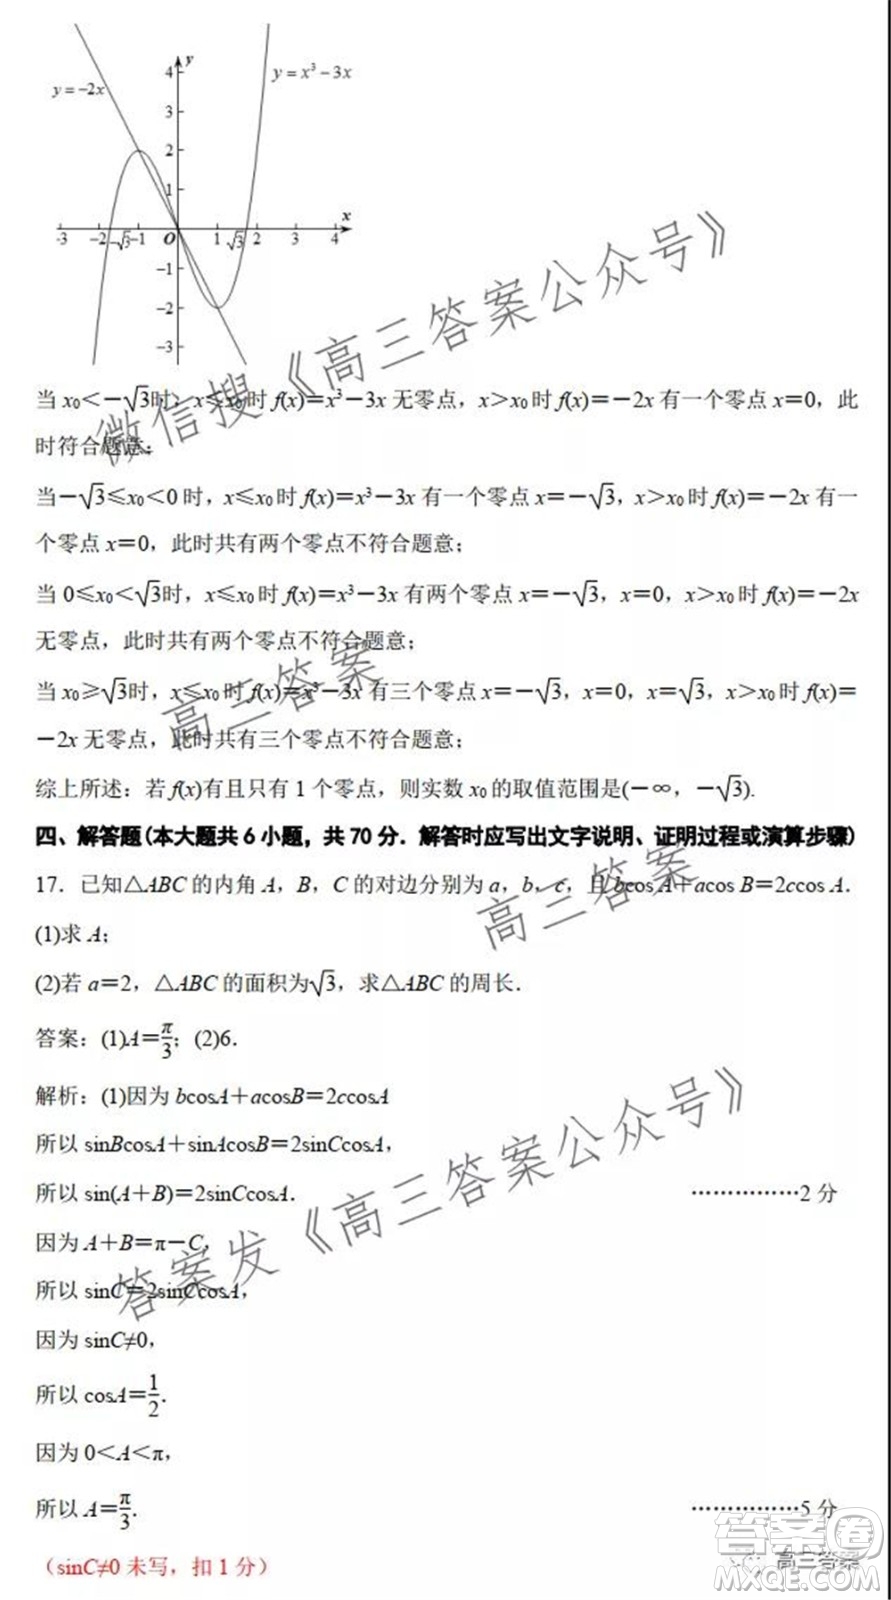 y=-2x
y
y=x³-3x
4
3
2
1
x
-3 -2 -√3 -1 O 1 √3 2 3 4
-1
-2
-3
当 x₀<-√3时，x≤x₀时 f(x)=x³-3x 无零点，x>x₀时 f(x)=-2x 有一个零点 x=0，此
时符合题意；
当-√3≤x₀<0 时，x≤x₀时 f(x)=x³-3x 有一个零点 x=-√3，x>x₀时 f(x)=-2x 有一
个零点 x=0，此时共有两个零点不符合题意；
当 0≤x₀<√3时，x≤x₀时 f(x)=x³-3x 有两个零点 x=-√3，x=0，x>x₀时 f(x)=-2x
无零点，此时共有两个零点不符合题意；
当 x₀≥√3时，x≤x₀时 f(x)=x³-3x 有三个零点 x=-√3，x=0，x=√3，x>x₀时 f(x)=
-2x 无零点，此时共有三个零点不符合题意；
综上所述：若 f(x)有且只有 1 个零点，则实数 x₀的取值范围是(-∞，-√3).
四、解答题(本大题共 6 小题，共 70 分．解答时应写出文字说明、证明过程或演算步骤)
17．已知△ABC 的内角 A，B，C 的对边分别为 a，b，c，且 bcos A+acos B=2ccos A．
(1)求 A；
(2)若 a=2，△ABC 的面积为√3，求△ABC 的周长．
答案：(1)A=π/3；(2)6．
解析：(1)因为 bcosA+acosB=2ccosA
所以 sinBcosA+sinAcosB=2sinCcosA，
所以 sin(A+B)=2sinCcosA． ……………2 分
因为 A+B=π-C，
所以 sinC=2sinCcosA，
因为 sinC≠0，
所以 cosA=1/2．
因为 0<A<π，
所以 A=π/3． ……………5 分
（sinC≠0 未写，扣 1 分）
微信搜《高三答案公众号》
高三答案
高三答案
答案发《高三答案公众号》
高三答案
答案圈
MXQE.COM